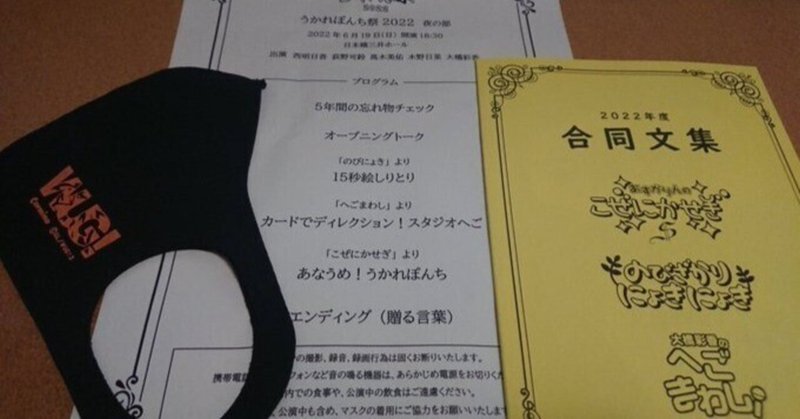 うかれぽんち祭 2022 夜の部
2022年6月19日(日) 開演18:30
日本橋三井ホール
出演 西明日香 荻野可鈴 高木美佑 水野日菜 大橋彩香
プログラム
5年間の忘れ物チェック
オープニングトーク
「のびにょき」より
15秒絵しりとり
「へごまわし」より
カードでディレクション!スタジオへご
「こぜにかせぎ」より
あなうめ!うかれぽんち
エンディング(贈る言葉)
の撮影、録音、録画行為は固くお断りいたします。
携帯電話
フォンなど音の鳴る機器は、あらかじめ電源をお切りく
内での食事や、公演中の飲食はご遠慮ください。
公演中も含め、マスクの着用にご協力をお願いいたします
2022年度
合同文集
あすかりんの
こぜにかせぎ
のびざかり
にょきにょき
大橋彩香の
へご
まわし